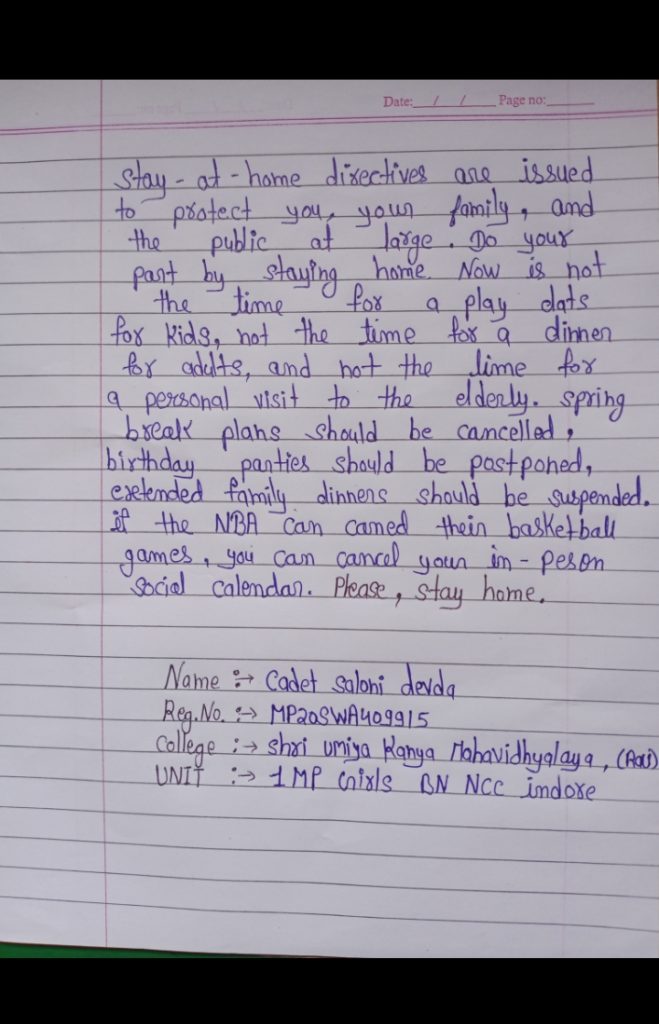 Date: / / Page no:
Stay-at-home directives are issued
to protect you, your family, and
the public at large. Do your
part by staying home. Now is not
the time for a play dats
for kids, not the time for a dinner
for adults, and not the time for
a personal visit to the elderly. spring
break plans should be cancelled,
birthday parties should be postponed,
extended family dinners should be suspended.
if the NBA can canced their basketball
games, you can cancel your in-peson
social calendar. Please, stay home.
Name :→ Cadet saloni devda
Reg.No. :→ MP20SWA409915
College :→ shri umiya Kanya Mahavidhyalaya, (Rau)
UNIT :→ 1 MP Girls BN NCC indore